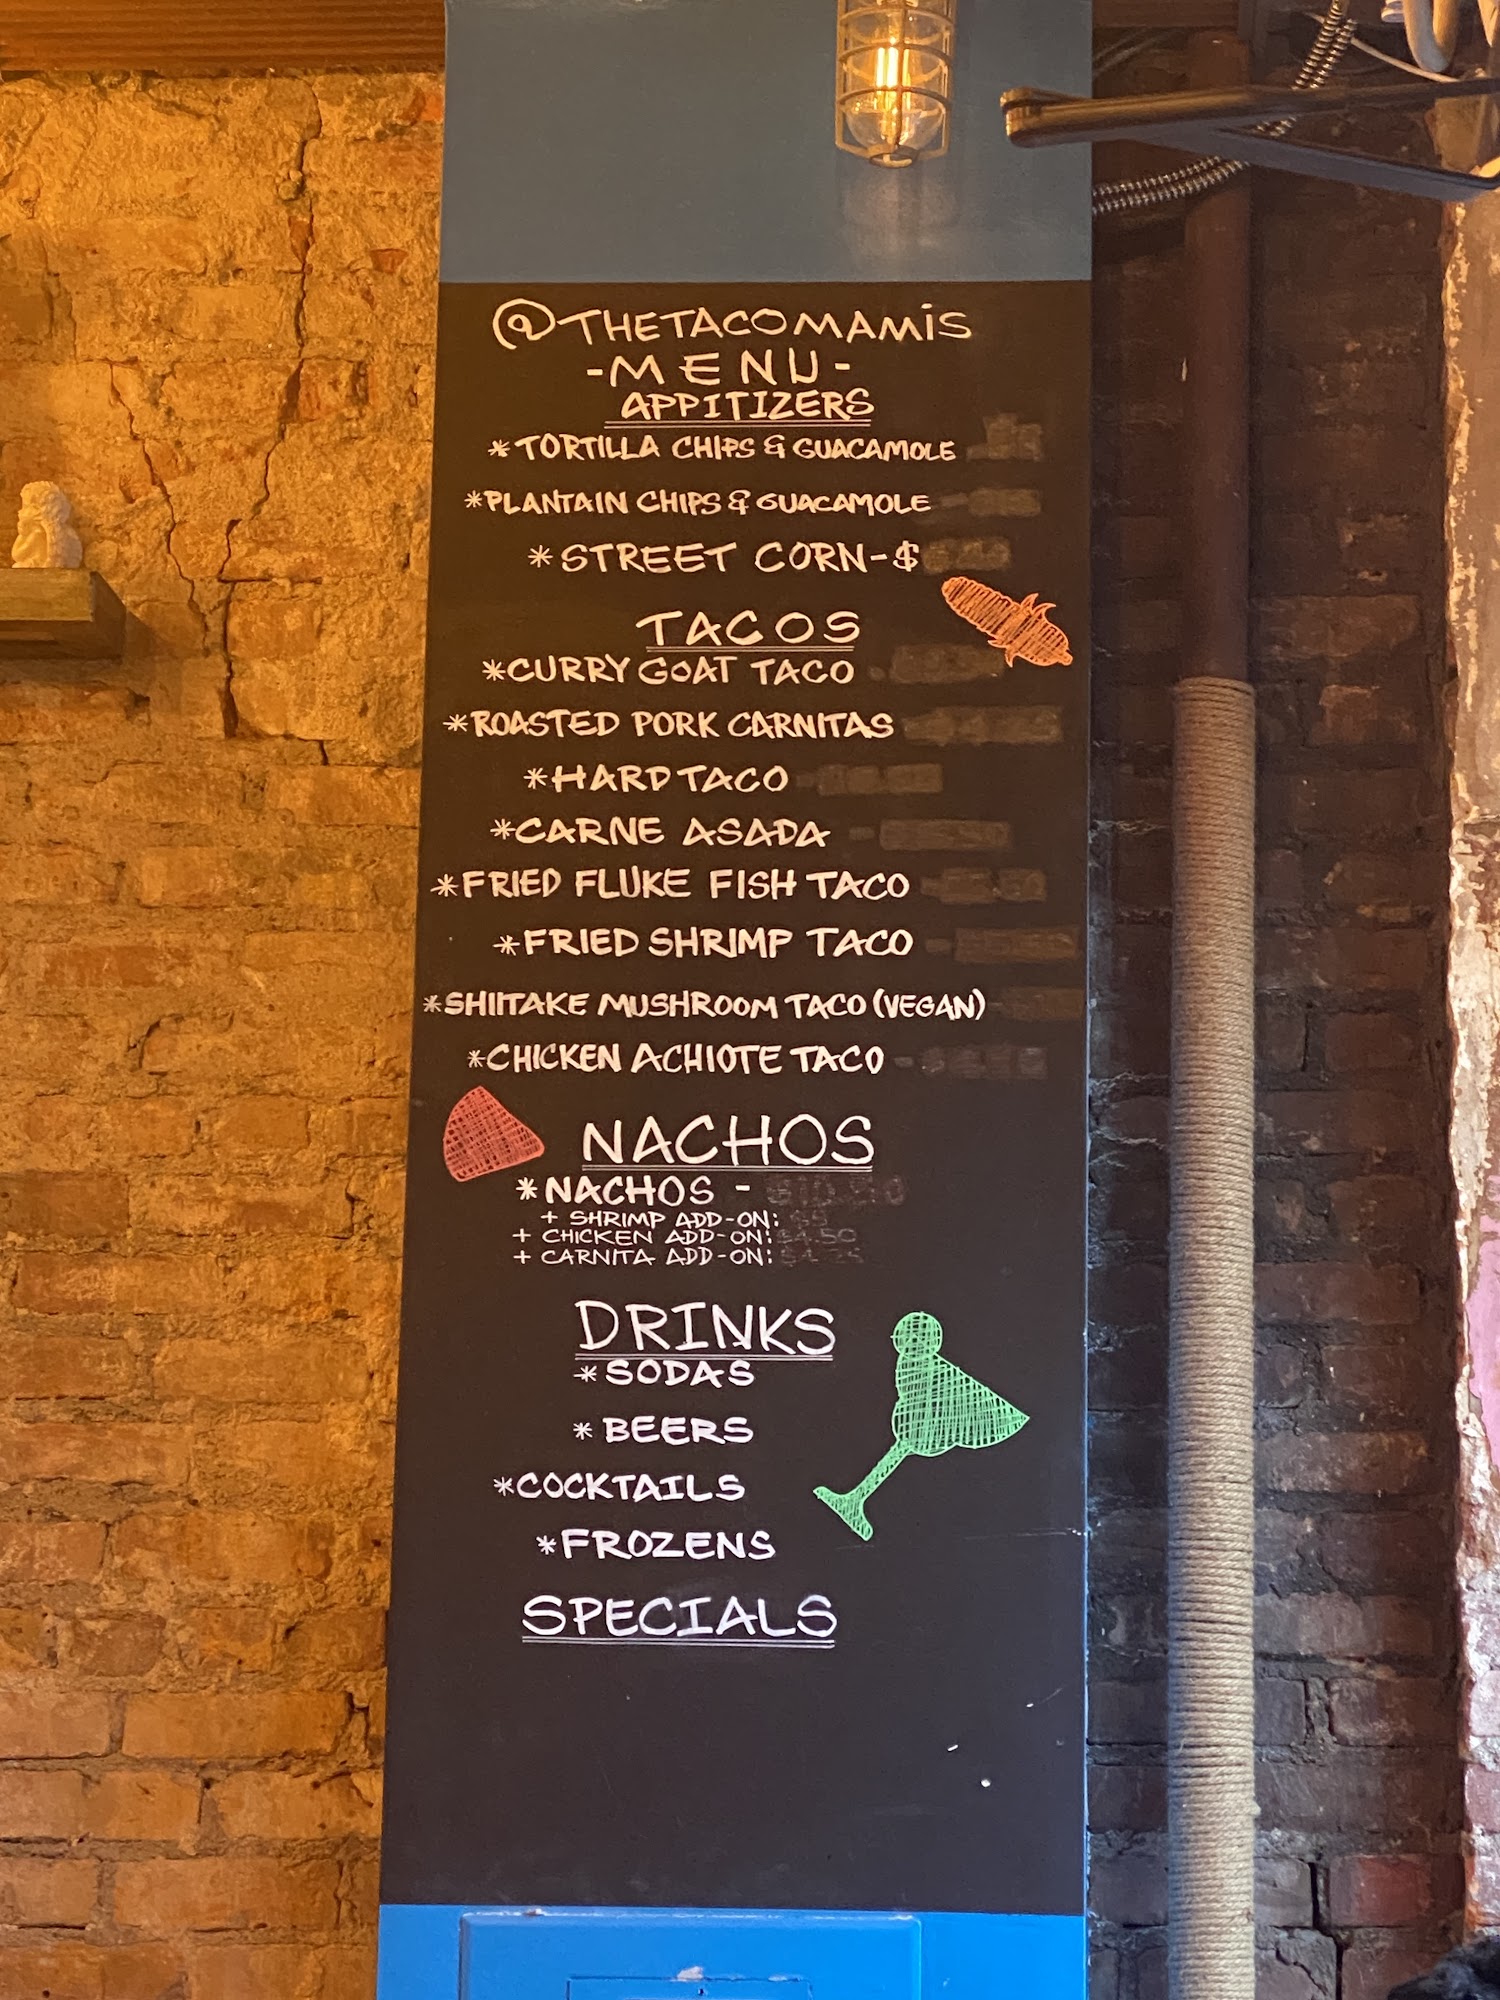 @THETACOMAMIS
-MENU-
APPITIZERS
*TORTILLA CHIPS & GUACAMOLE
*PLANTAIN CHIPS & GUACAMOLE
*STREET CORN-$
TACOS
*CURRY GOAT TACO
*ROASTED PORK CARNITAS
*HARD TACO
*CARNE ASADA
*FRIED FLUKE FISH TACO
*FRIED SHRIMP TACO
*SHIITAKE MUSHROOM TACO (VEGAN)
*CHICKEN ACHIOTE TACO
NACHOS
*NACHOS -
+ SHRIMP ADD-ON:
+ CHICKEN ADD-ON: $4.50
+ CARNITA ADD-ON:
DRINKS
*SODAS
* BEERS
*COCKTAILS
*FROZENS
SPECIALS